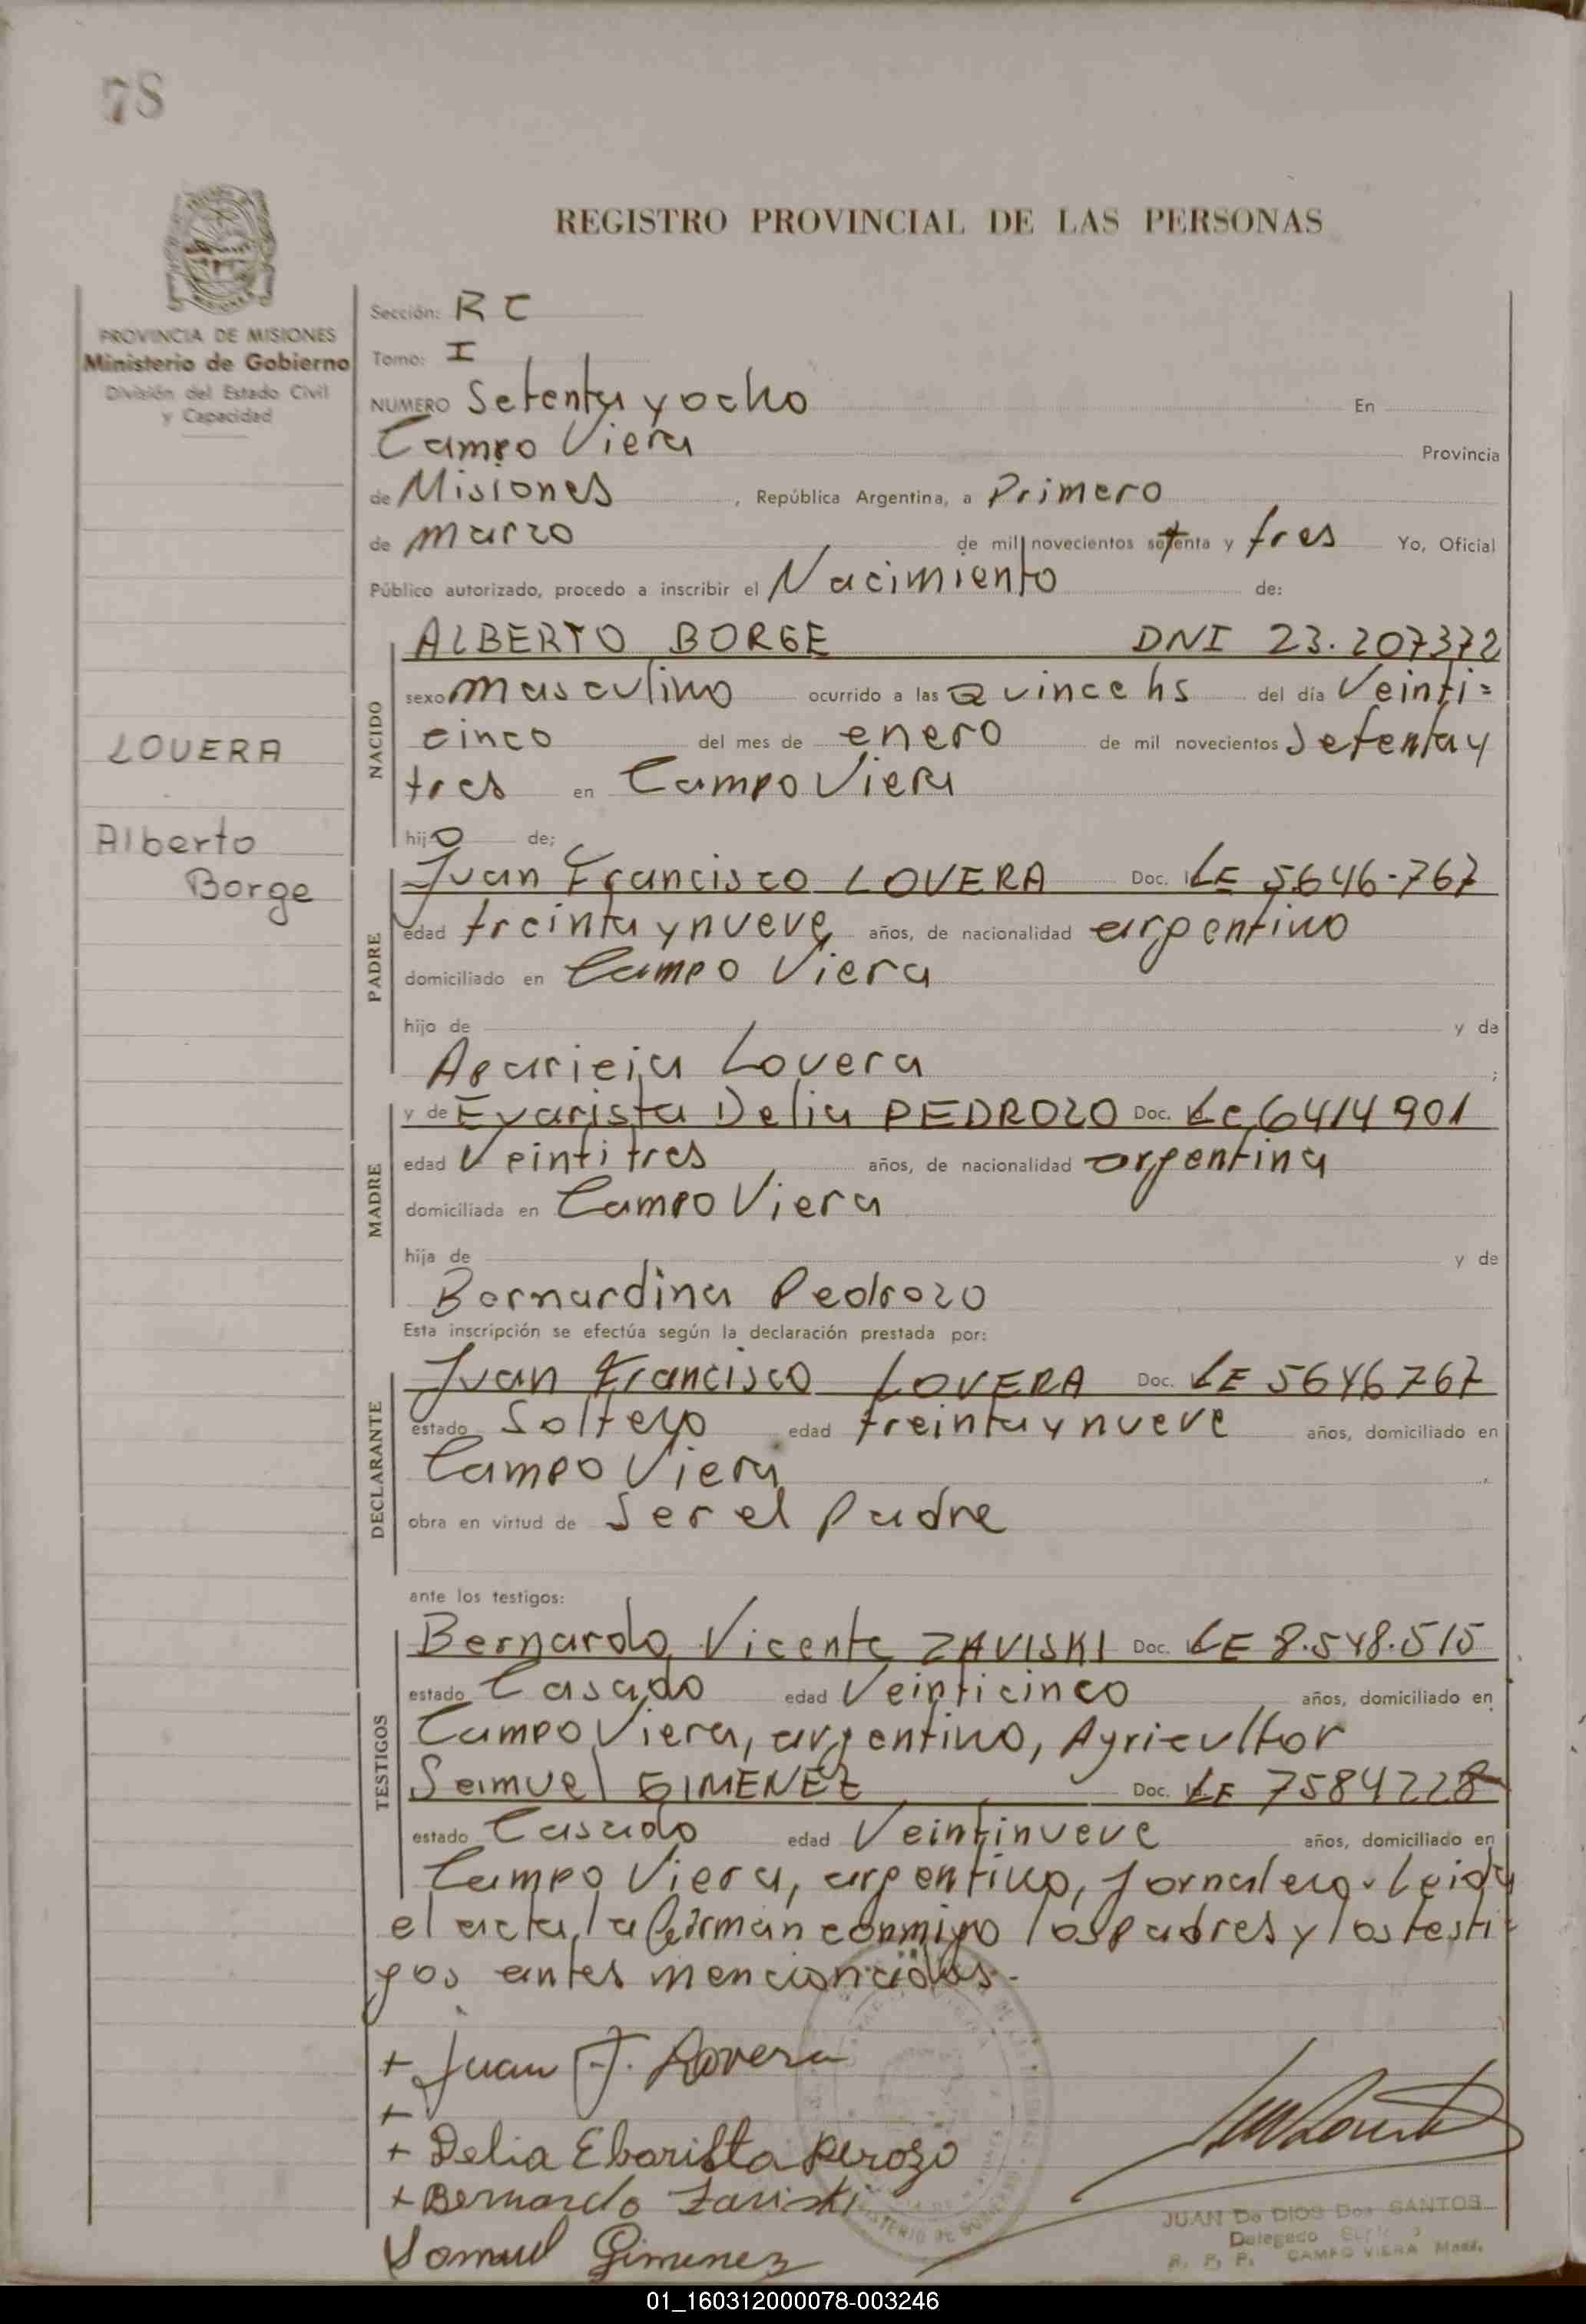 78
REGISTRO PROVINCIAL DE LAS PERSONAS
PROVINCIA DE MISIONES
Ministerio de Gobierno
División del Estado Civil
y Capacidad
Sección: R C
Tomo: I
NUMERO Setenta y ocho En
Campo Viera Provincia
de Misiones, República Argentina, a Primero
de marzo de mil novecientos setenta y tres Yo, Oficial
Público autorizado, procedo a inscribir el Nacimiento de:
LOVERA
Alberto
Borge
NACIDO
ALBERTO BORGE DNI 23.207372
sexo masculino ocurrido a las Quince hs del día Veinti=
cinco del mes de enero de mil novecientos Setenta y
tres en Campo Viera
hijo de;
PADRE
Juan Francisco LOVERA Doc. LE 5646-767
edad treinta y nueve años, de nacionalidad argentino
domiciliado en Campo Viera
hijo de y de
Aparicia Lovera ;
MADRE
y de Evarista Delia PEDROZO Doc. LC 6414901
edad Veintitres años, de nacionalidad argentina
domiciliada en Campo Viera
hija de y de
Bernardina Pedrozo
Esta inscripción se efectúa según la declaración prestada por:
DECLARANTE
Juan Francisco LOVERA Doc. LE 5646767
estado Soltero edad treinta y nueve años, domiciliado en
Campo Viera
obra en virtud de Ser el Padre
ante los testigos:
TESTIGOS
Bernardo Vicente ZAVISKI Doc. LE 8.548.515
estado Casado edad Veinticinco años, domiciliado en
Campo Viera, argentino, Agricultor
Samuel GIMENEZ Doc. LE 7584228
estado Casado edad Veintinueve años, domiciliado en
Campo Viera, argentino, Jornalero. Leida
el acta, la firman conmigo los padres y los testi=
gos antes mencionados.-
+ Juan F. Lovera
+
+ Delia Ebarista Perozo
+ Bernardo Zaviski
Samuel Gimenez
JUAN De DIOS Dos SANTOS
Delegado
R. P. P. CAMPO VIERA Mnes.
01_160312000078-003246